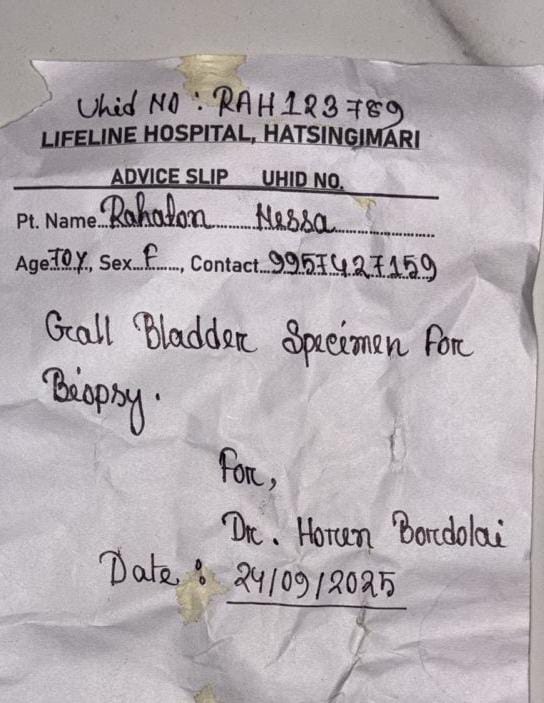 Uhid NO : RAH123789
LIFELINE HOSPITAL, HATSINGIMARI
ADVICE SLIP UHID NO.
Pt. Name..Rahaton Nessa
Age..70y.., Sex..F...., Contact..9957427159
Gall Bladder Specimen For
Biopsy.
For,
Dr. Horen Bordolai
Date : 24/09/2025